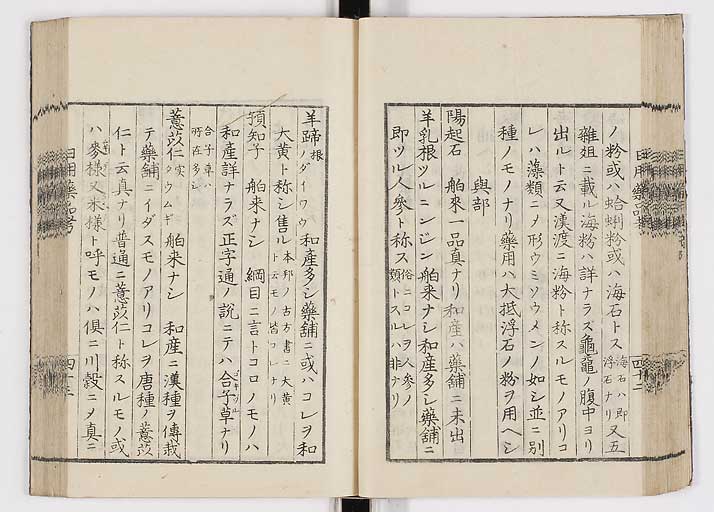 ノ粉或ハ蛤蜊粉或ハ海石トス海石ハ即浮石ナリ又五
雜俎ニ載ル海粉ハ詳ナラズ龜黿ノ腹中ヨリ
出ルト云又漢渡ニ海粉ト称スルモノアリコ
レハ藻類ニノ形ウミソウメンノ如シ並ニ別
種ノモノナリ藥用ハ大抵浮石ノ粉ヲ用ヘシ
與部
陽起石 舶來一品真ナリ和産ハ藥舗ニ未出
羊乳根ツルニンジン舶来ナシ和産多シ藥舗ニ
即ツル人參ト称ス俗ニコレヲ人參ノ類トスルハ非ナリ
日用藥品考
四十二
羊蹄根ノダイワウ和産多シ藥舗ニ或ハコレヲ和
大黄ト称シ售ル本邦ノ古方書ニ大黄ト云モノ皆コレナリ
預知子 舶来ナシ 綱目ニ言トコロノモノハ
和産詳ナラズ正字通ノ説ニテハ合子草ナリ
合子草ハ所在多シ
薏苡仁 舶来ナシ 和産ニ漢種ヲ傳栽
テ藥舗ニイダスモノアリコレヲ唐種ノ薏苡
仁ト云真ナリ普通ニ薏苡仁ト称スルモノ或
ハ麥様又米様ト呼モノハ俱ニ川穀ニメ真ニ
日用藥品考